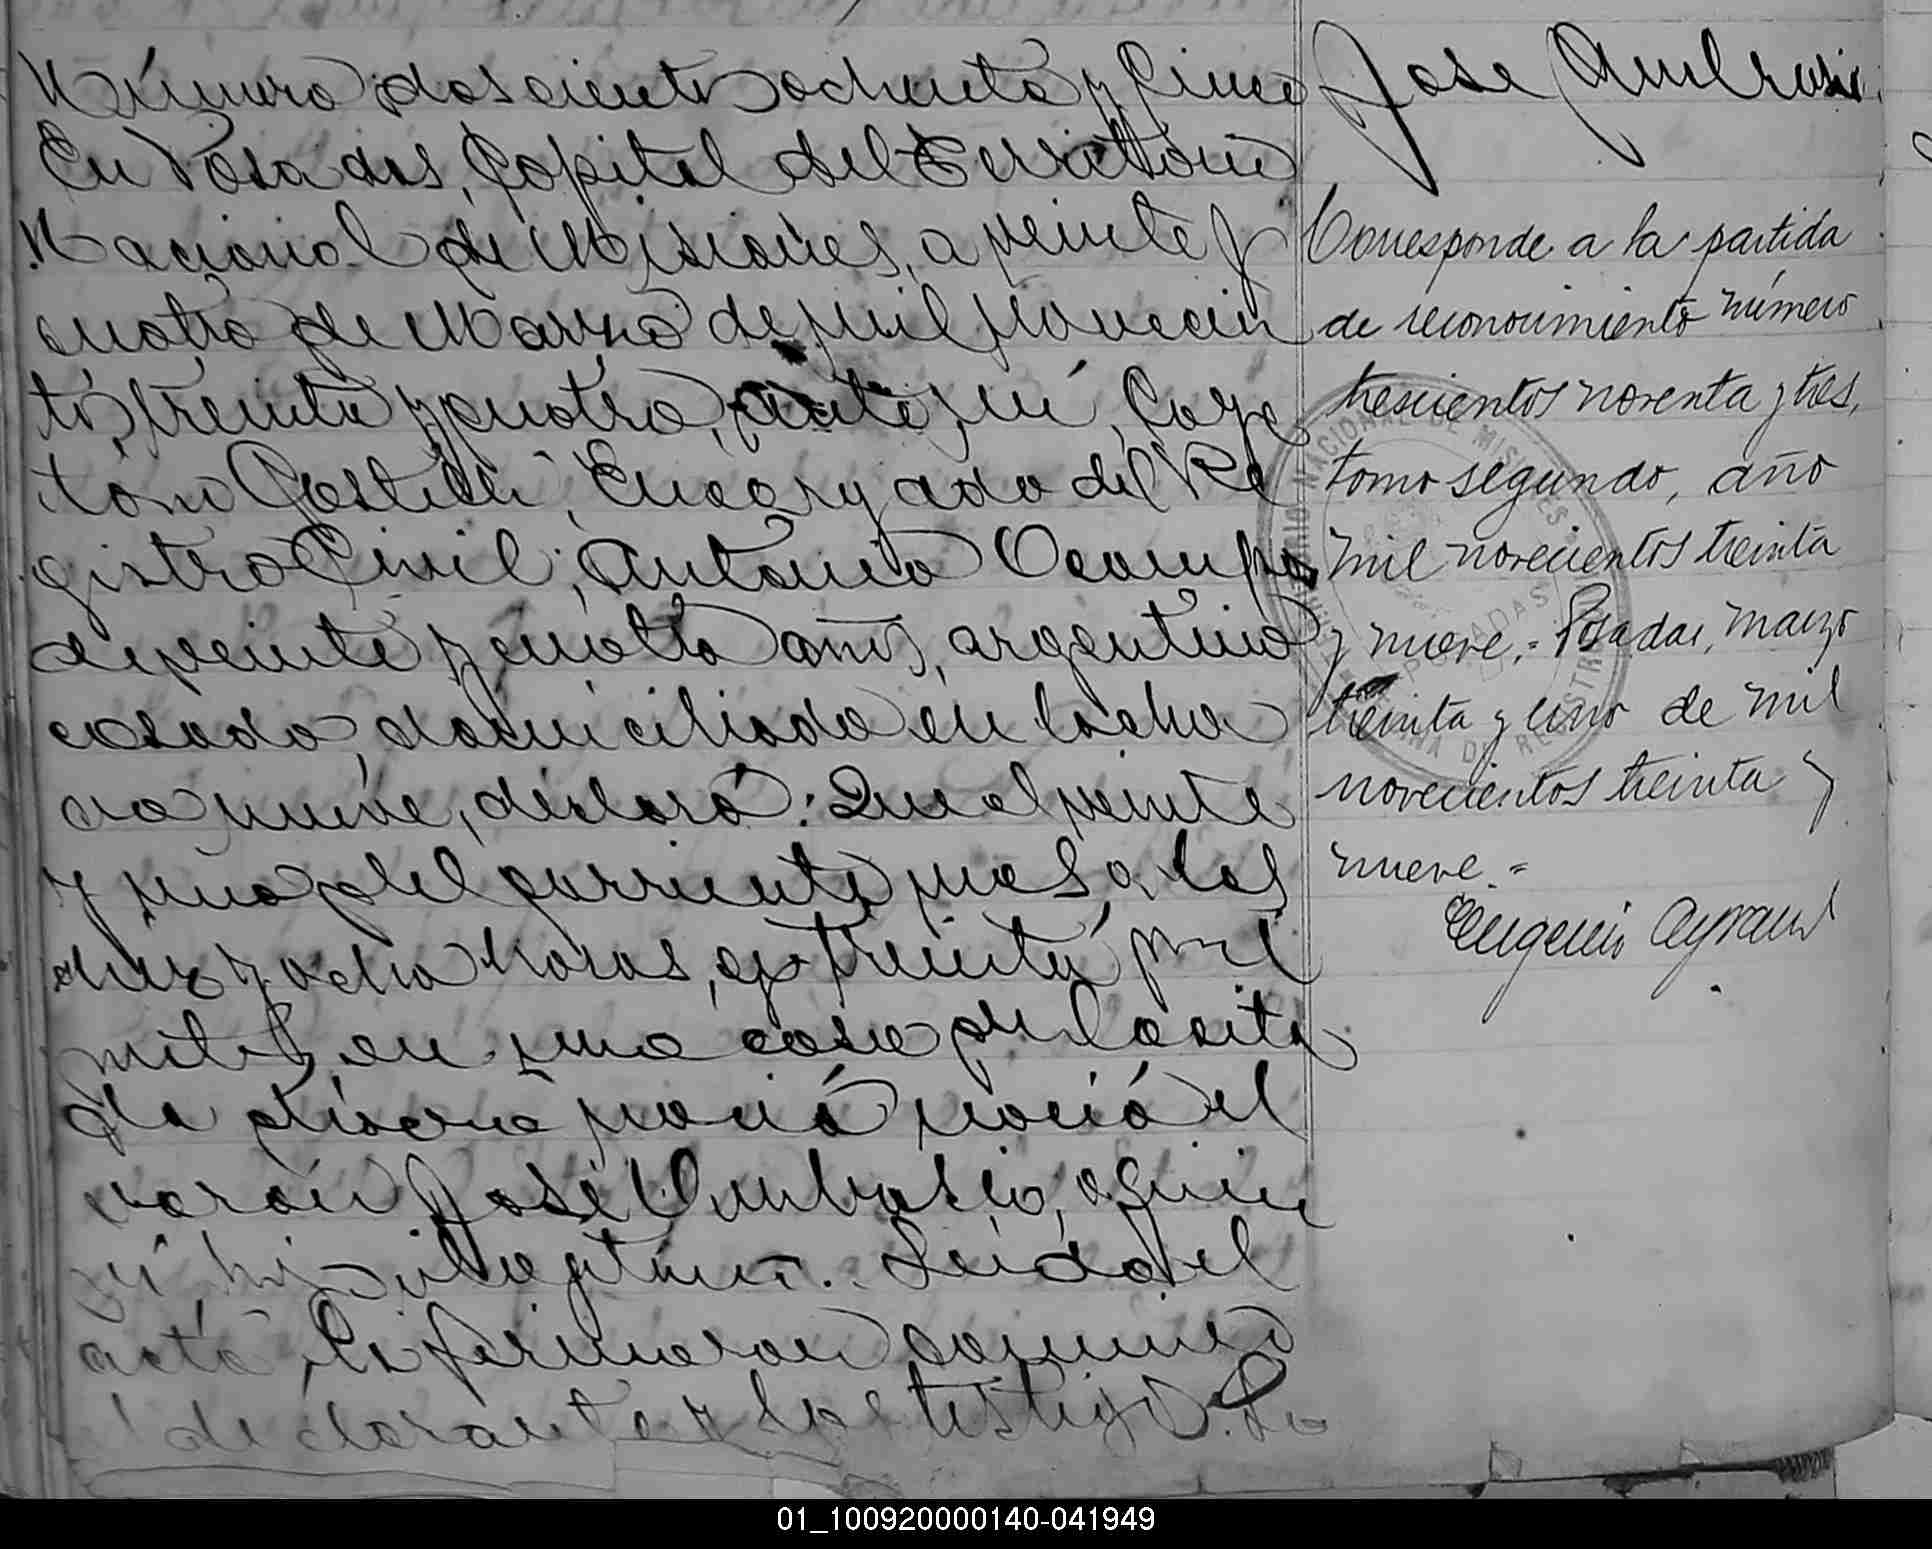 Número doscientos ochenta y cinco
En Posadas, Capital del Territorio
Nacional de Misiones, a veinte y
cuatro de Marzo de mil novecien
tos treinta y cuatro, ante mí, Caye
tano Castelli, Encargado del Re
gistro Civil; Antonio Ocampo
de veinte y cuatro años, argentino
casado, domiciliado en la cha
cra nueve, declaró: Que el veinte
y uno del corriente mes a las
diez y ocho horas, y treinta mi
nutos, en una casa de la cita
da chacra nació nació el
varon José Ambrosio, a quien
Leida el
acta, la firmaron conmigo
el declarante y los testigos
Jose Ambrosio.
Corresponde a la partida
de reconocimiento número
trescientos noventa y tres,
tomo segundo, año
mil novecientos treinta
y nueve.= Posadas, marzo
treinta y uno de mil
novecientos treinta y
nueve.=
Eugenio Ayraul
01_100920000140-041949